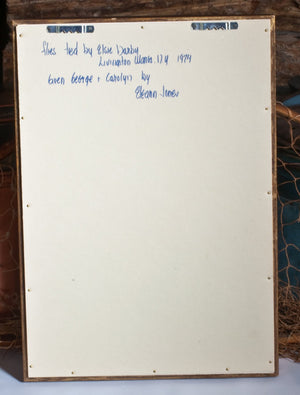 flies tied by Elsie Darby
Livingston Manor. N.Y 1979
Given George + Carolyn by
Eleann Jones